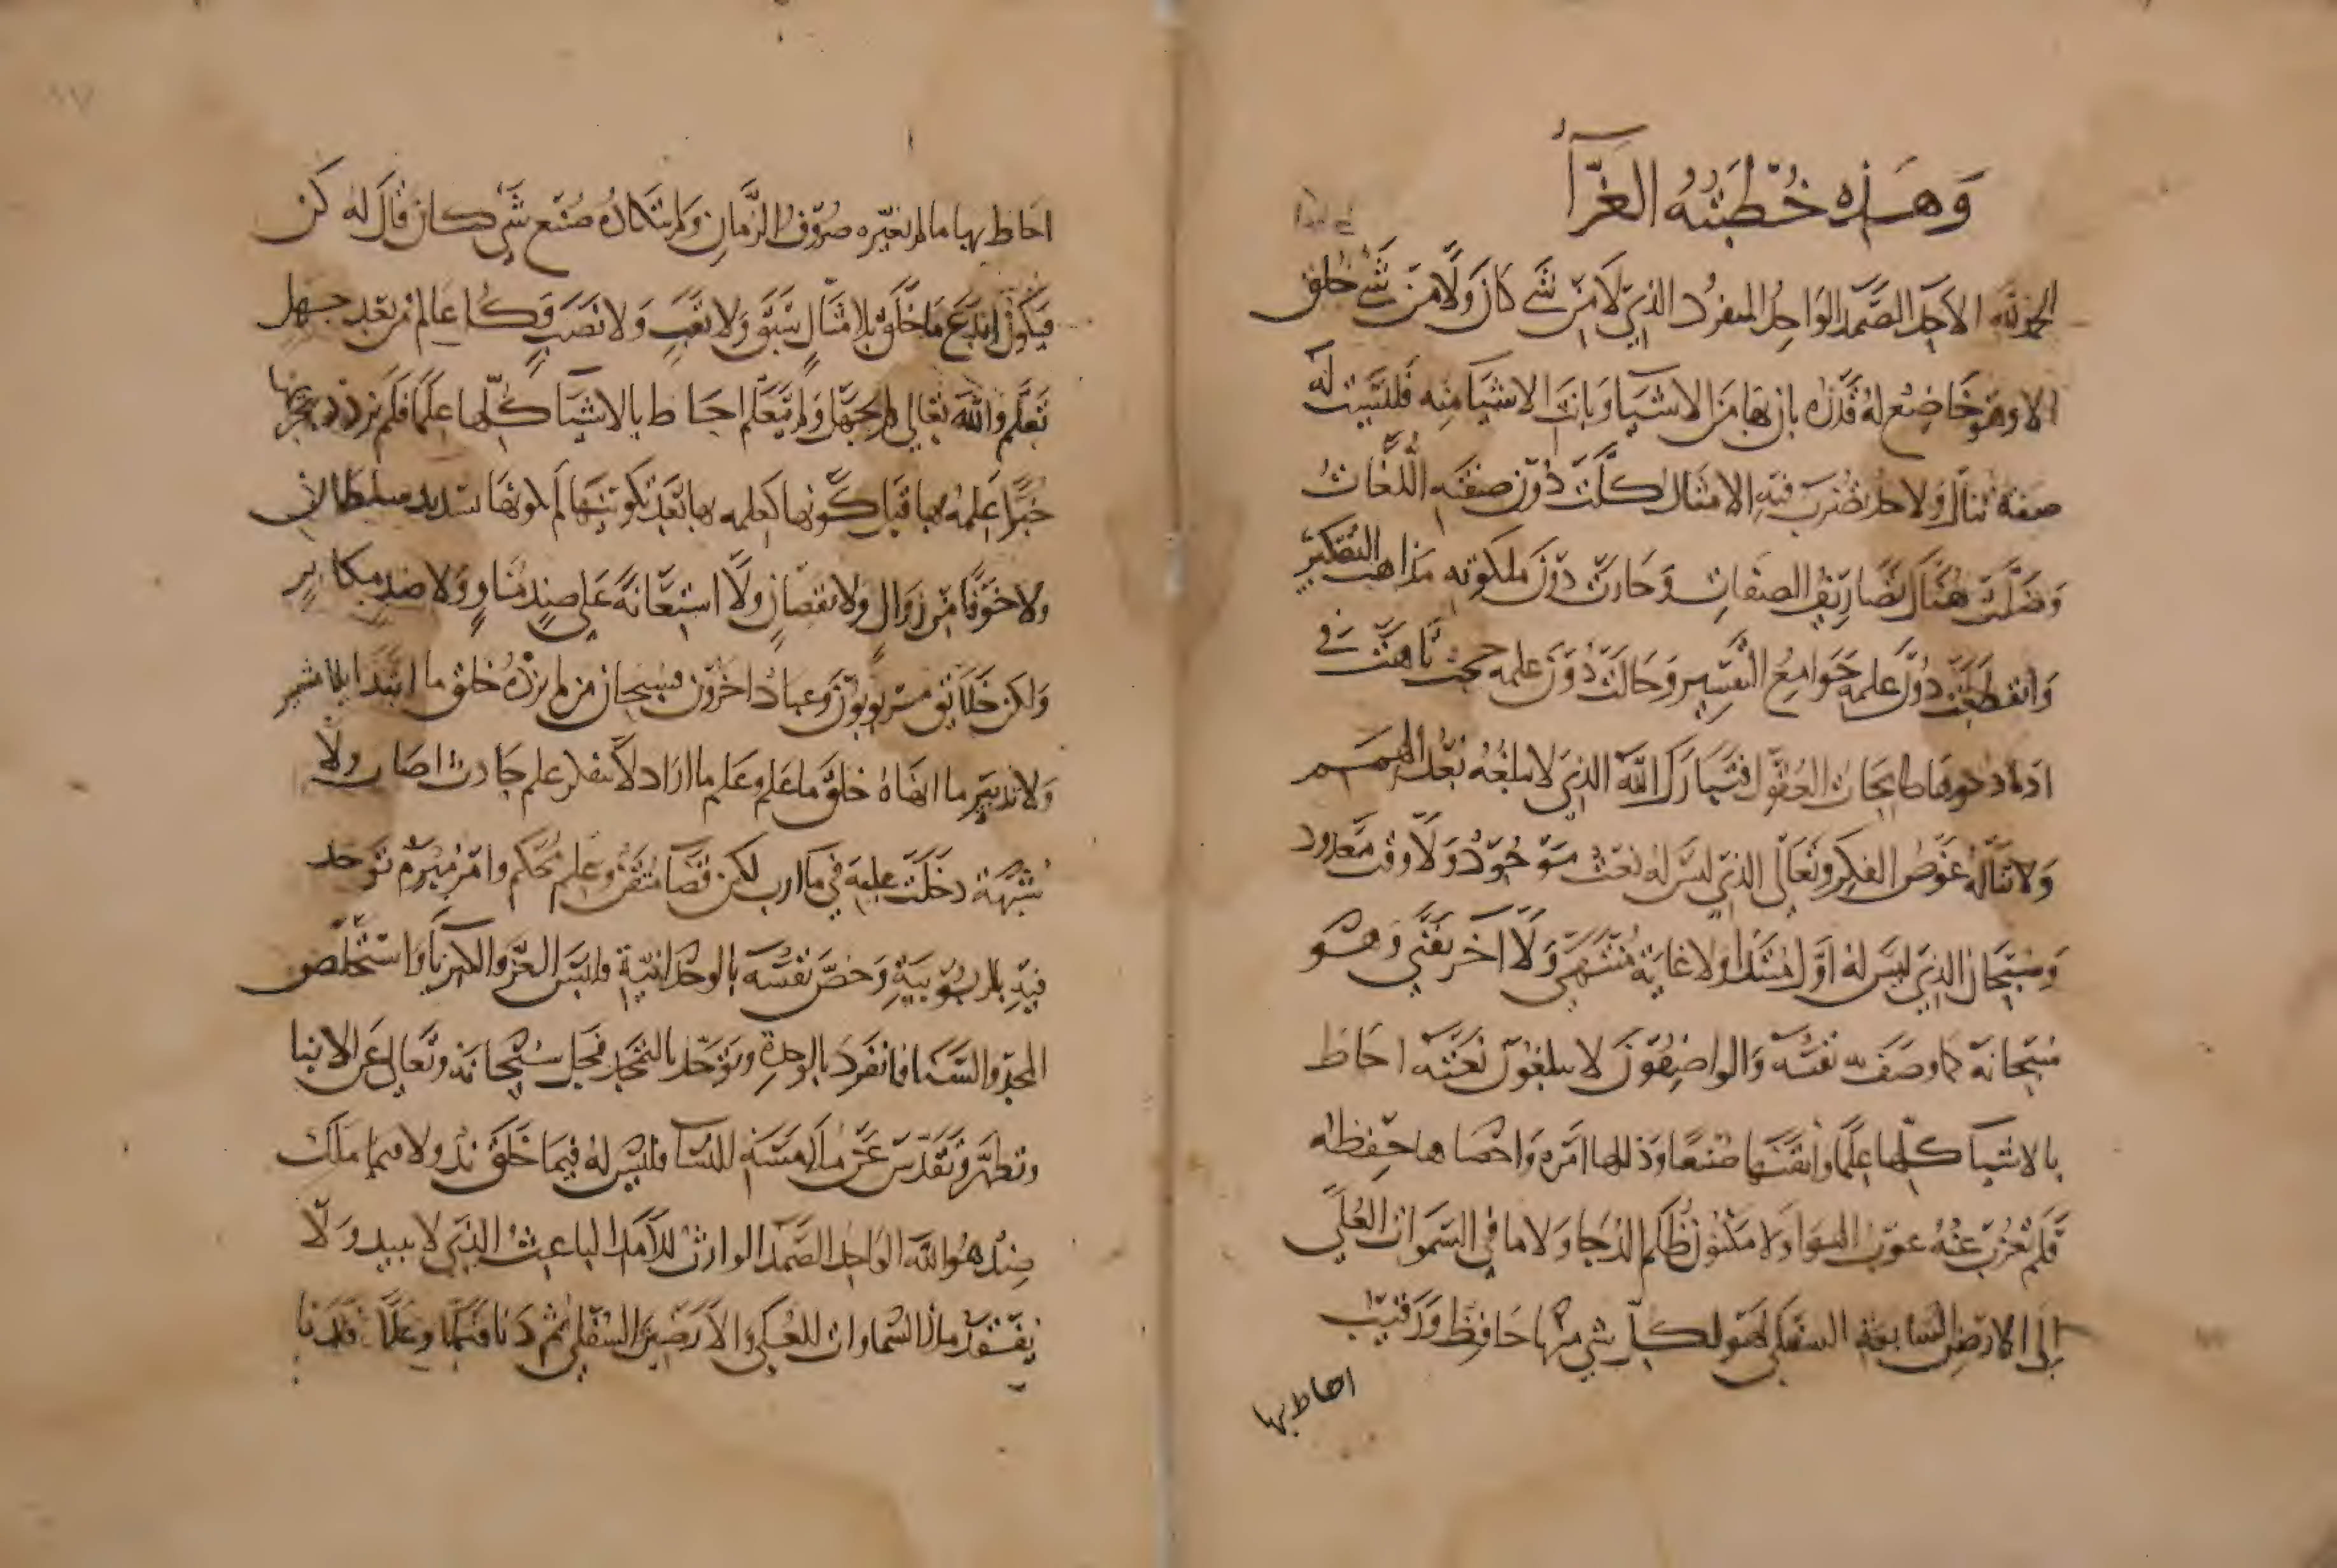 وَهَذِهِ خُطْبَتُهُ الغَرَّآءُ
الحمد لله الاحد الصَّمَد الوَاحِد المنفرد الذي لا من شَيْ كان وَلا من شَيْ خلق
الا وهو خَاضِع له قدره بان بها من الاشيا وبانت الاشيا منه فليست له
صفة تنال ولا حد يضرب فيه الامثال كلَّت دون صفته اللغات
وَضَلَّت هنالك تصاريف الصفات وحارت دون ملكوته مذاهب التفكير
وانقطعت دون علمه جَوامع التفسير وحالت دون علمه حجب تاهت في
ادنا دنوها طامحات العقول فتبارك الله الذي لا يبلغه بُعْد الهمم
ولا يناله غوص الفكر وتعالى الذي ليس له نعت موجود ولا وقت معدود
وسبحان الذي ليس له اول مبتدا ولا غاية منتهى وَلا اخر يفنى وهو
سبحانه كما وصف نفسه والواصفون لا يبلغون نعته احاط
بالاشيا كلها علما واتقنها صنعا وذللها امره واحصاها حفظه
فلم يعزب عنه غيوب الهوا ولا مكنون ظلم الدجا ولا ما في السموات العُلى
الى الارض السابعة السفلى فهو لكل شي منها حافظ ورقيب
احاط بها
احاط بها ما لم تغيره صروف الزمان ولم يتكاده صنع شي كان قال له كن
فيكون ابتدع ما خلق بلا مثال سبق ولا تعب ولا نصب وكل عالم من بعد جهل
تعلم والله تعالى لم يجهل ولم يتعلم احاط بالاشيا كلها علما فلم يزدد بتجربتها
خبرا علمه بها قبل كونها كعلمه بها بعد تكوينها لم يكونها لشديد سلطان
ولا خوفا من زوال ولا نقصان ولا استعانة على ضد مناو ولا ند مكاثر
ولكن خلايق مربوبون وعباد داخرون فسبحان من لم يؤده خلق ما ابتدا
ولا تدبير ما انشاه خلق ما علم وعلم ما اراد لا بتفكر علم حادث اصاب ولا
شبهة دخلت عليه في ما اراد لكن قضا متقن وعلم محكم وامر مبرم توحد
فيه بالربوبية وخص نفسه بالوحدانية فلبس العز والكبريا واستخلص
المجد والسنا فانفرد بالوحدة وتوحد بالتمجد فجل سبحانه وتعالى عن الابنا
وتطهر وتقدس عن ملامسة النسا فليس له فيما خلق ند ولا فيما ملك
ضد هو الله الواحد الصمد الوارث للامد الباعث الذي لا يبيد ولا
ينفد ملك السماوات العلى والارضين السفلى ثم دنا فعلا وعلا فدنا